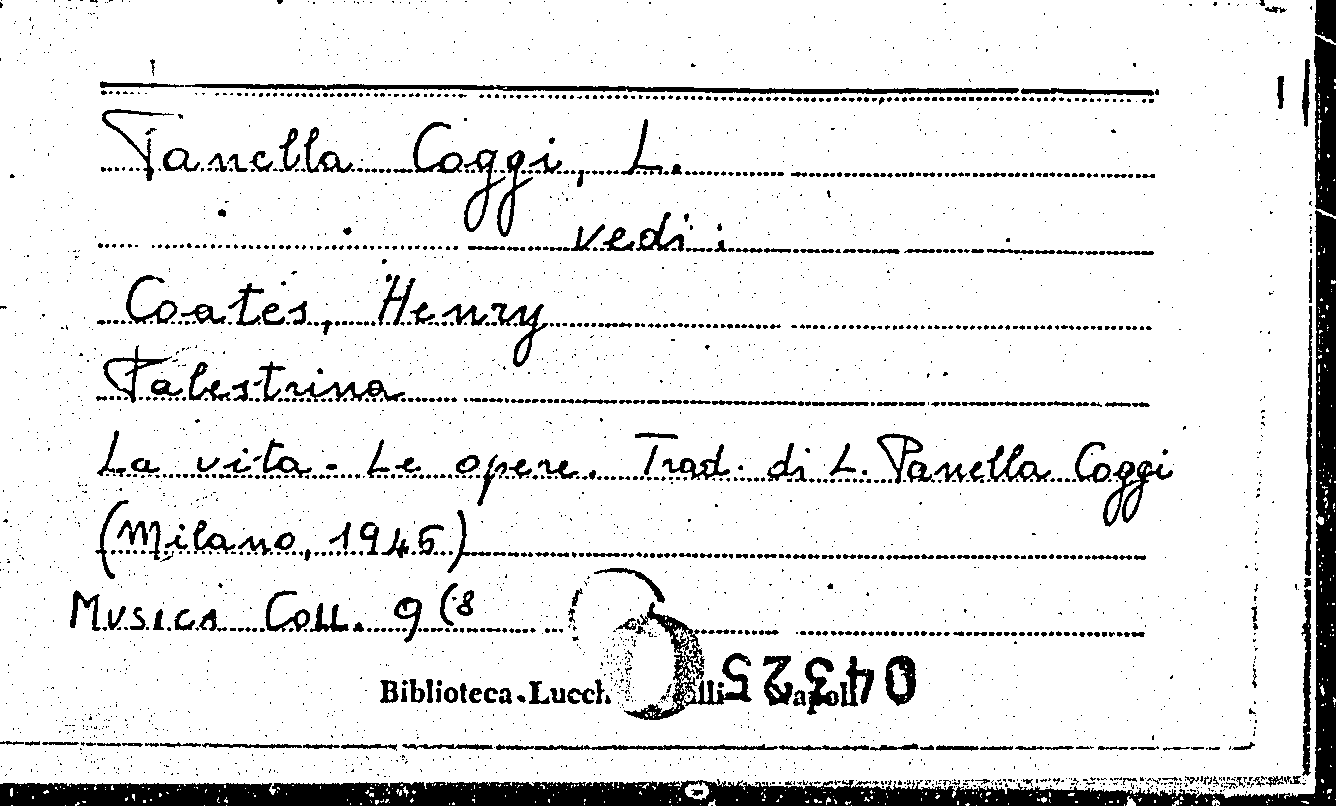 Panella Coggi, L.
vedi:
Coates, Henry
Palestrina
La vita - Le opere. Trad. di L. Panella Coggi
(Milano, 1946)
MUSICA COLL. 9 (8
Biblioteca Napoli